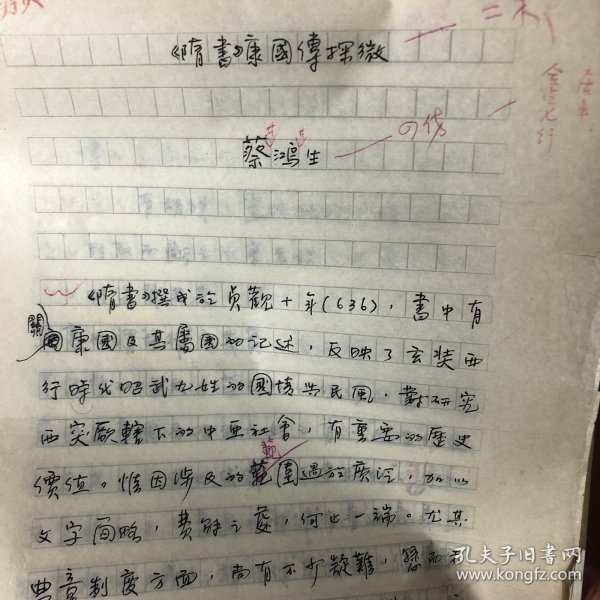 《隋書》康國傳探微
二彩
四仿
蔡鴻生
《隋書》撰成於貞觀十年(636)，書中有
關康國及其屬國的记述，反映了玄奘西
行時代昭武九姓的國情與民風，對研究
西突厥轄下的中亞社會，有重要的歷史
價值。惜因涉及的範圍過於廣泛，加以
文字简略，費解之處，何止一端。尤其
典章制度方面，尚有不少疑難，
孔夫子旧书网
www.kongfz.com